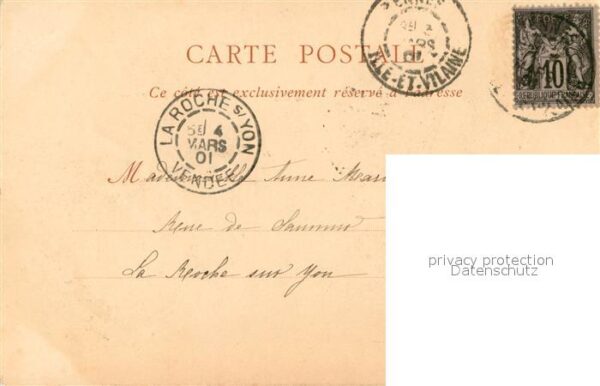 CARTE POSTALE
Ce côté est exclusivement réservé à l'adresse
RENNES
MARS
01
ILLE-ET-VILAINE
10
REPUBLIQUE FRANÇAISE
LA ROCHE S/YON
5E 4
MARS
01
VENDÉE
Mademoiselle Anne Mari
Rue de Saumur
La Roche sur Yon
privacy protection
Datenschutz